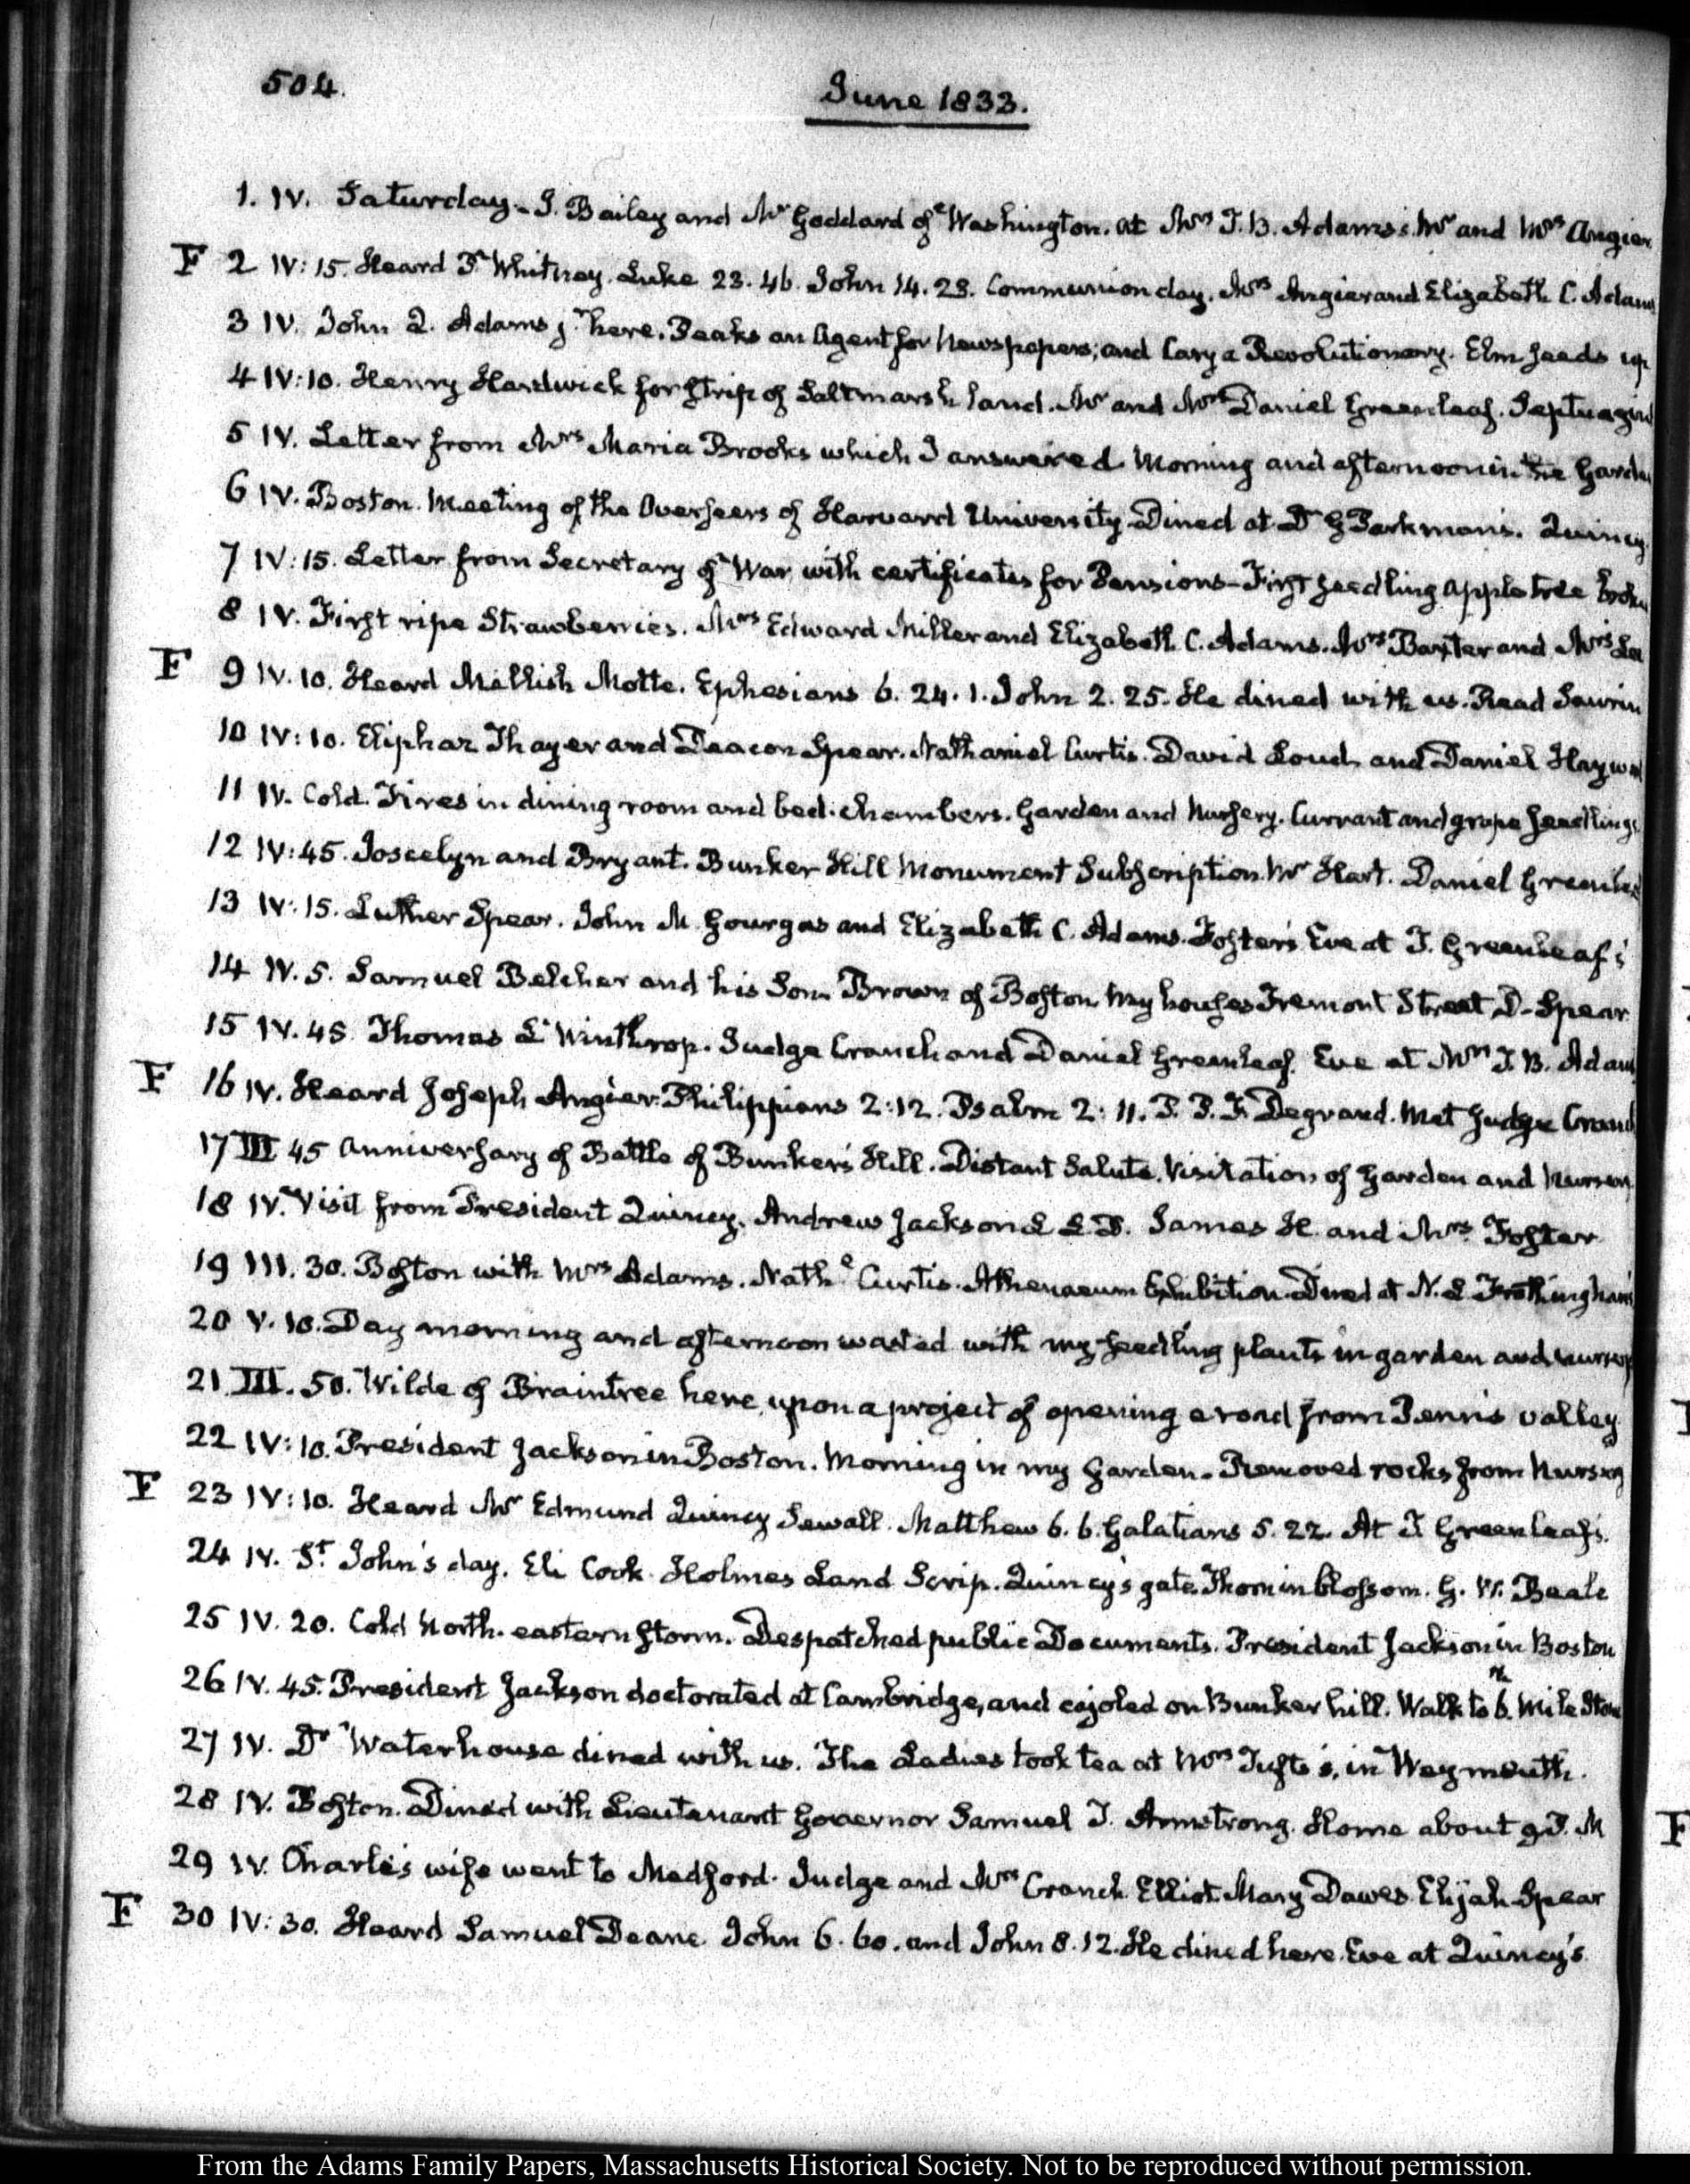 504.
June 1833.
1. IV. Saturday. J. Bailey and Mr Goddard of Washington. at Mrs T. B. Adams's. Mr and Mrs Angier
F 2 IV:15. Heard P. Whitney. Luke 23. 46. John 14. 28. Communion day. Mrs Angier and Elizabeth C. Adams
3 IV. John Q. Adams jr here. Beaks an Agent for Newspapers, and Cary a Revolutionary. Elm seeds up
4 IV:10. Henry Hardwick for strip of Saltmarsh land. Mr and Mrs Daniel Greenleaf. Septuagind
5 IV. Letter from Mrs Maria Brooks which I answered. Morning and afternoon in the Garden
6 IV. Boston. Meeting of the Overseers of Harvard University. Dined at Dr G Parkman's. Quincy.
7 IV:15. Letter from Secretary of War with certificates for Pensions – First seedling apple tree
8 IV. First ripe Strawberries. Mrs Edward Miller and Elizabeth C. Adams. Mrs Baxter and Mrs
F 9 IV. 10. Heard Mellish Motte. Ephesians 6. 24. 1. John 2. 25. He dined with us. Read Saurin
10 IV:10. Eliphaz Thayer and Deacon Spear. Nathaniel Curtis. David Loud and Daniel Haywd
11 IV. Cold. Fires in dining room and bed-chambers. Garden and Nursery. Currant and grape seedlings
12 IV:45. Joscelyn and Bryant. Bunker Hill Monument Subscription. Mr Hart. Daniel Greenleaf
13 IV:15. Luther Spear. John M. Gourgas and Elizabeth C. Adams. Foster's Eve at T. Greenleaf's
14 IV. 5. Samuel Belcher and his Son. Brown of Boston. My houses Tremont Street. D. Spear
15 IV. 45. Thomas L. Winthrop. Judge Cranch and Daniel Greenleaf. Eve at Mrs T. B. Adams
F 16 IV. Heard Joseph Angier. Philippians 2:12. Psalm 2:11. P. P. F. Degrand. Met Judge Cranch
17 III 45 Anniversary of Battle of Bunker's Hill. Distant Salute. Visitation of Garden and Nursery
18 IV. Visit from President Quincy. Andrew Jackson L. L. D. James H. and Mrs Foster
19 III. 30. Boston with Mrs Adams. Nathl Curtis. Athenaeum Exhibition. Dined at N. L Frothingham's
20 V. 10. Day morning and afternoon wasted with my seedling plants in garden and nursery
21. III. 50. Wilde of Braintree here, upon a project of opening a road from Penn's valley
22 IV:10. President Jackson in Boston. Morning in my Garden. Removed rocks from Nursery
F 23 IV:10. Heard Mr Edmund Quincy Sewall. Matthew 6. 6. Galatians 5. 22. At T. Greenleaf's.
24 IV. St John's day. Eli Cook. Holmes Land Scrip. Quincy's gate. Thorn in blossom. G. W. Beale
25 IV. 20. Cold North-eastern Storm. Despatched public Documents. President Jackson in Boston
26 IV. 45. President Jackson doctorated at Cambridge, and cajoled on Bunker hill. Walk to 6th Mile Stone
27 IV. Dr Waterhouse dined with us. The Ladies took tea at Mrs Tufts's, in Weymouth.
28 IV. Boston. Dined with Lieutenant Governor Samuel T. Armstrong. Home about 9 P. M
29 IV. Charles's wife went to Medford. Judge and Mrs Cranch. Elliot. Mary Dawes. Elijah Spear
F 30 IV:30. Heard Samuel Deane. John 6. 60. and John 8. 12. He dined here. Eve at Quincy's
F
From the Adams Family Papers, Massachusetts Historical Society. Not to be reproduced without permission.